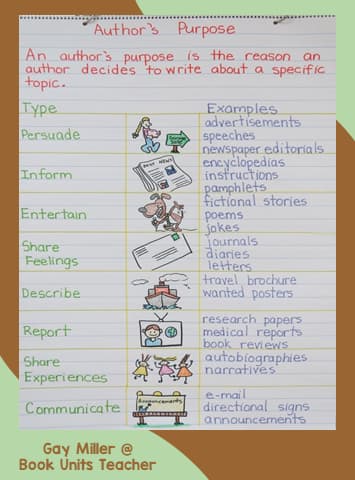 Author's Purpose
An author's purpose is the reason an
author decides to write about a specific
topic.
Type
Examples
Persuade
advertisements
speeches
newspaper editorials
Inform
encyclopedias
instructions
pamphlets
Entertain
fictional stories
poems
jokes
Share
Feelings
journals
diaries
letters
Describe
travel brochure
wanted posters
Report
research papers
medical reports
book reviews
Share
Experiences
autobiographies
narratives
Communicate
Announcements
e-mail
directional signs
announcements
Gay Miller @
Book Units Teacher